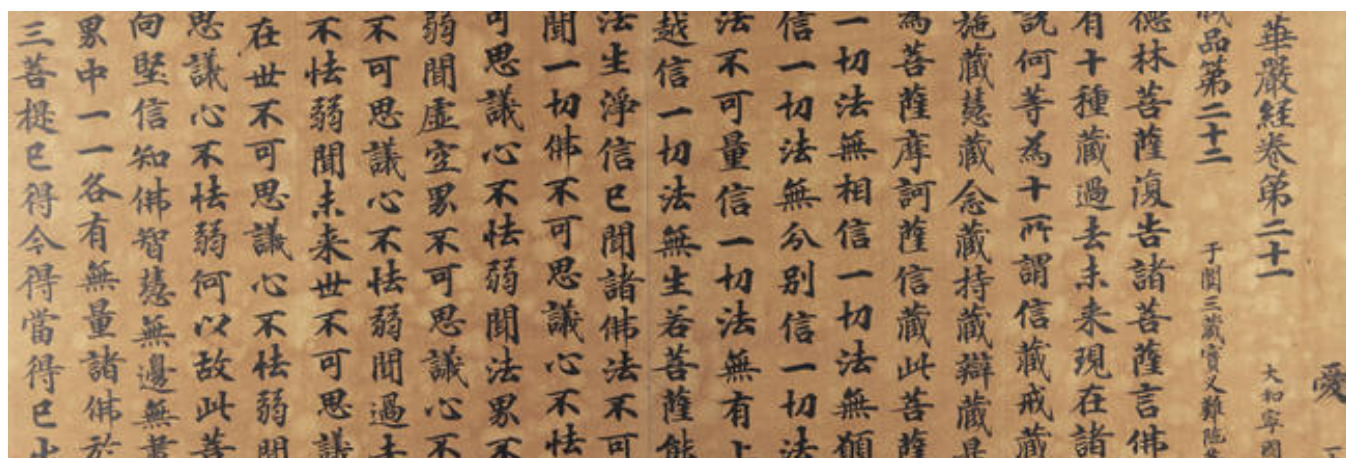 愛
華嚴經卷第二十一 大和寧國
藏品第二十二 于闐三藏實叉難陁
德林菩薩復告諸菩薩言佛
有十種藏過去未来現在諸
說何等為十所謂信藏戒藏
施藏慧藏念藏持藏辯藏是
為菩薩摩訶薩信藏此菩薩
一切法無相信一切法無願
信一切法無分别信一切法
法不可量信一切法無有上
越信一切法無生若菩薩能
法生淨信已聞諸佛法不可
聞一切佛不可思議心不怯
可思議心不怯弱聞法界不
弱聞虛空界不可思議心不
不可思議心不怯弱聞過去
不怯弱聞未来世不可思議
在世不可思議心不怯弱聞
思議心不怯弱何以故此菩
向堅信知佛智慧無邊無盡
界中一一各有無量諸佛於
三菩提已得今得當得已出